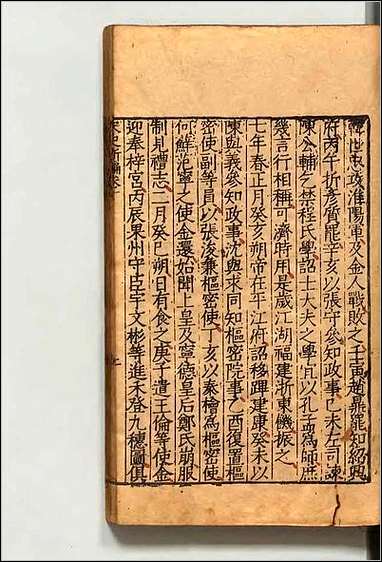 韓世忠攻淮陽軍及金人戰敗之壬寅趙鼎罷知紹興
府丙午折彥質罷辛亥以張守參知政事己未左司諫
陳公輔乞禁程氏學詔士大夫之學宜以孔孟爲師庶
幾言行相稱可濟時用是歲江湖福建浙東饑振之
七年春正月癸亥朔帝在平江府詔移蹕建康癸未以
陳與義參知政事沈與求同知樞密院事乙酉復置樞
密使副等員以張浚兼樞密使丁亥以秦檜爲樞密使
何蘚范寧之使金還始聞上皇及寧德皇后鄭氏崩服
制見禮志二月癸巳朔日有食之庚子遣王倫等使金
迎奉梓宮丙辰果州守臣宇文彬等進禾登九穗圖俱
宋史新編卷十